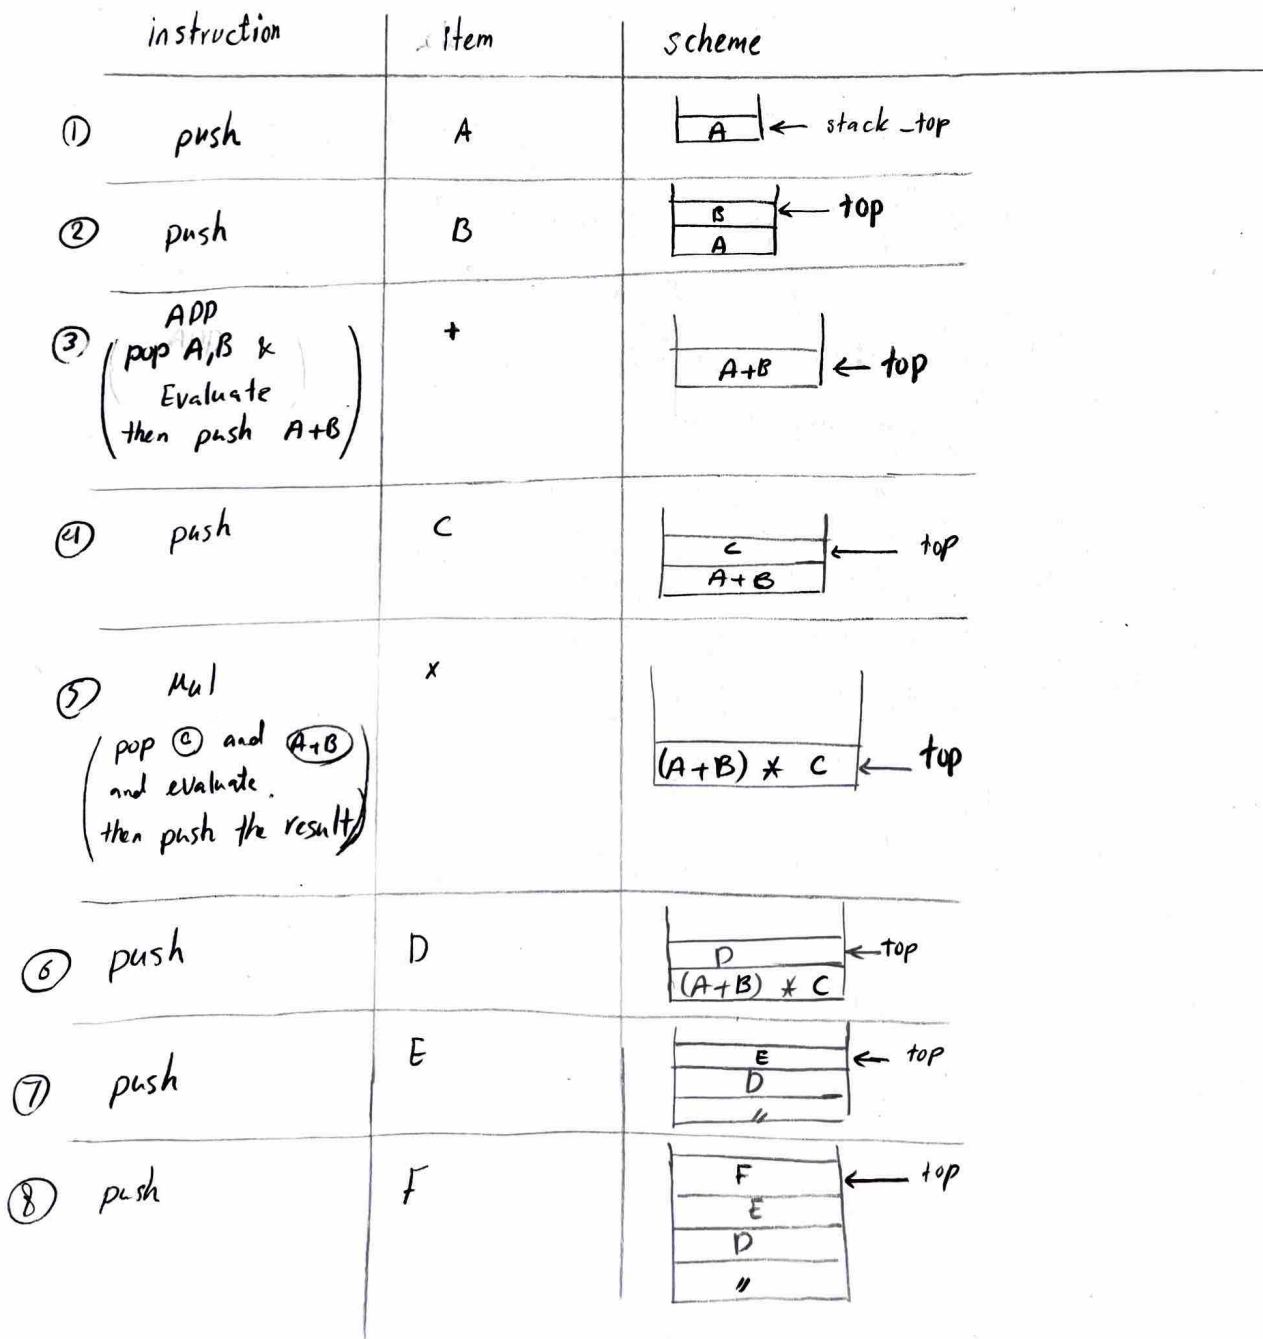 instruction item scheme
① push A A ← stack_top
② push B B ← top
A
③ ADD +
(pop A,B &
Evaluate
then push A+B)
A+B ← top
④ push C C ← top
A+B
⑤ Mul x
(pop Ⓒ and A+B
and evaluate.
then push the result)
(A+B) * C ← top
⑥ push D D ← top
(A+B) * C
⑦ push E E ← top
D
〃
⑧ push F F ← top
E
D
〃